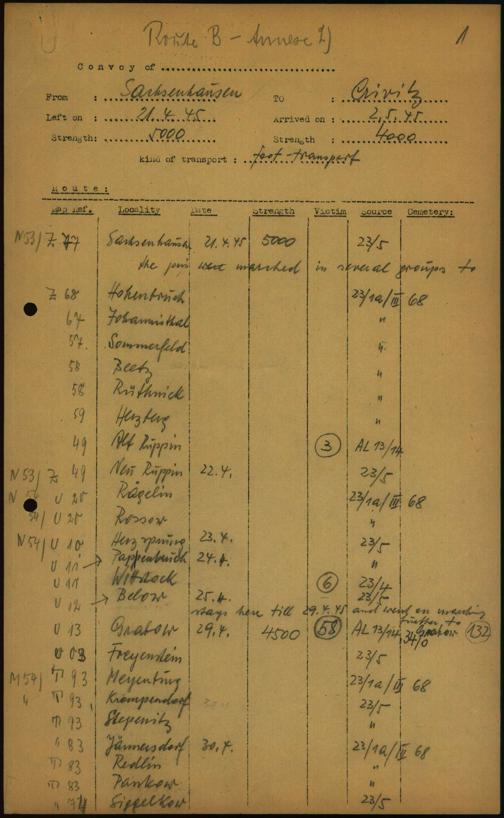 Route B - Annexe 2)
1
Convoy of
From : Sachsenhausen TO : Crivitz
Left on : 21.4.45 Arrived on : 2.5.45
Strength: 5000 Strength : 4000
kind of transport : foot transport
Route:
Map Ref. Locality Date Strength Victim Source Cemetery:
N53/ Z 77 Sachsenhausen 21.4.45 5000 23/5
the were marched in several groups to
Z 68 Hohenbruch 23/1a/III 68
67 Johannisthal "
57. Sommerfeld "
58 Beetz "
58 Rüthnick "
59 Herzberg "
49 Alt Ruppin 3 AL 13/14
N53/ Z 49 Neu Ruppin 22.4. 23/5
N U 20 Rägelin 23/1a/III 68
54/ U 20 Rossow "
N54/ U 10 Herzsprung 23.4. 23/5
U 11 → Pappenbruch 24.4. "
U 11 Wittstock 6 23/4
U 12 → Below 25.4. 23/5
stays here till 29.4.45 and went on marching
further to
U 13 Grabow 29.4. 4500 58 AL 13/14 Grabow 132
U 03 Freyenstein 23/5
M54/ T 93 Meyenburg 23/1a/III 68
" T 93 Krempendorf 23/5
T 93 Stepenitz "
" 83 Jännersdorf 30.4. 23/1a/III 68
T 83 Redlin "
T 83 Pankow "
" 74 Siggelkow 23/5